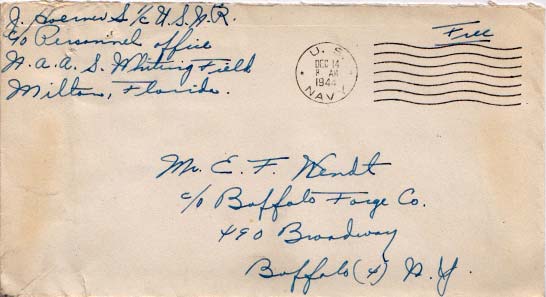 J. Hoerner S 1/c U.S.N.R.
c/o Personnel office
N.A.A.S. Whiting Field
Milton, Florida.
Free
U. S.
DEC 14
8 AM
1944
NAVY
Mr. E. F. Wendt
c/o Buffalo Forge Co.
490 Broadway
Buffalo (4) N.Y.